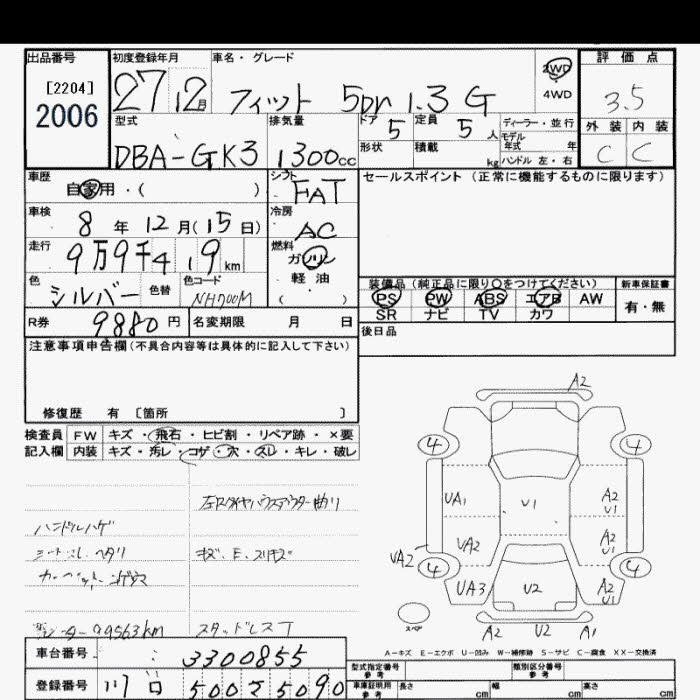 出品番号 初度登録年月 車名・グレード 2WD 評価点
[2204] 27 12月 フィット 5Dr 1.3 G 4WD 3.5
2006
型式 排気量 ドア 5 定員 5人 ディーラー・並行 外装 内装
モデル年式 年
DBA-GK3 1300cc 形状 積載 kg ハンドル 左・右 C C
車歴 自家用・( ) シフト FAT セールスポイント(正常に機能するものに限ります)
車検 8年12月(15日) 冷房 AC
走行 9万9千4 19km 燃料 ガソリン
軽・油
( )
色 シルバー 色替 色コード NH700M
装備品(純正品に限り○をつけてください) 新車保証書
PS PW ABS エアB AW 有・無
SR ナビ TV カワ
R券 9880円 名変期限 月 日 後日品
注意事項申告欄(不具合内容等は具体的に記入して下さい)
修復歴 有 〔箇所 〕
検査員 FW キズ・飛石・ヒビ割・リペア跡・×要
記入欄 内装 キズ・汚レ・コゲ・穴・スレ・キレ・破レ
ハンドルハゲ
キズ、E、スリキズ
99563km スタッドレスT
A2
4 4
UA1 U1 A2
U1
UA2 A2
U1
UA2 4 4
UA3 U2 A2
U1
スペア
A2 U2 A1
A-キズ E-エクボ U-凹み W-補修跡 S-サビ C-腐食 XX-交換済
車台番号 3300855
登録番号 500 5090
型式指定番号 参考 類別区分番号 参考
車庫証明用 参考 長さ cm 幅 cm 高さ cm